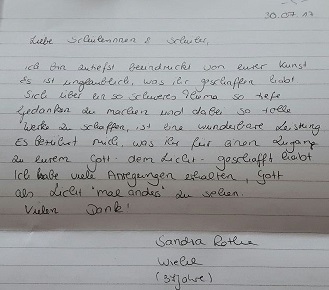 30.07.17
Liebe Schülerinnen & Schüler,
ich bin zutiefst beeindruckt von eurer Kunst
Es ist unglaublich, was ihr geschaffen habt
Sich über ein so schweres Thema so tiefe
Gedanken zu machen und dabei so tolle
Werke zu schaffen, ist eine wunderbare Leistung
Es berührt mich, was ihr für einen Zugang
zu eurem Gott - dem Licht - geschafft habt
Ich habe viele Anregungen erhalten, Gott
als Licht "mal anders" zu sehen.
Vielen Dank!
Sandra
(37 Jahre)